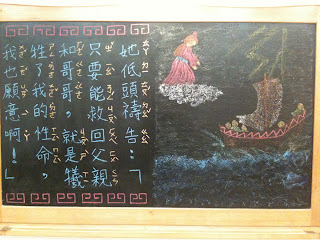 她低頭禱告：「
只要能救回父親
和哥哥，就是犧
牲了我的性命，
我也願意啊！」